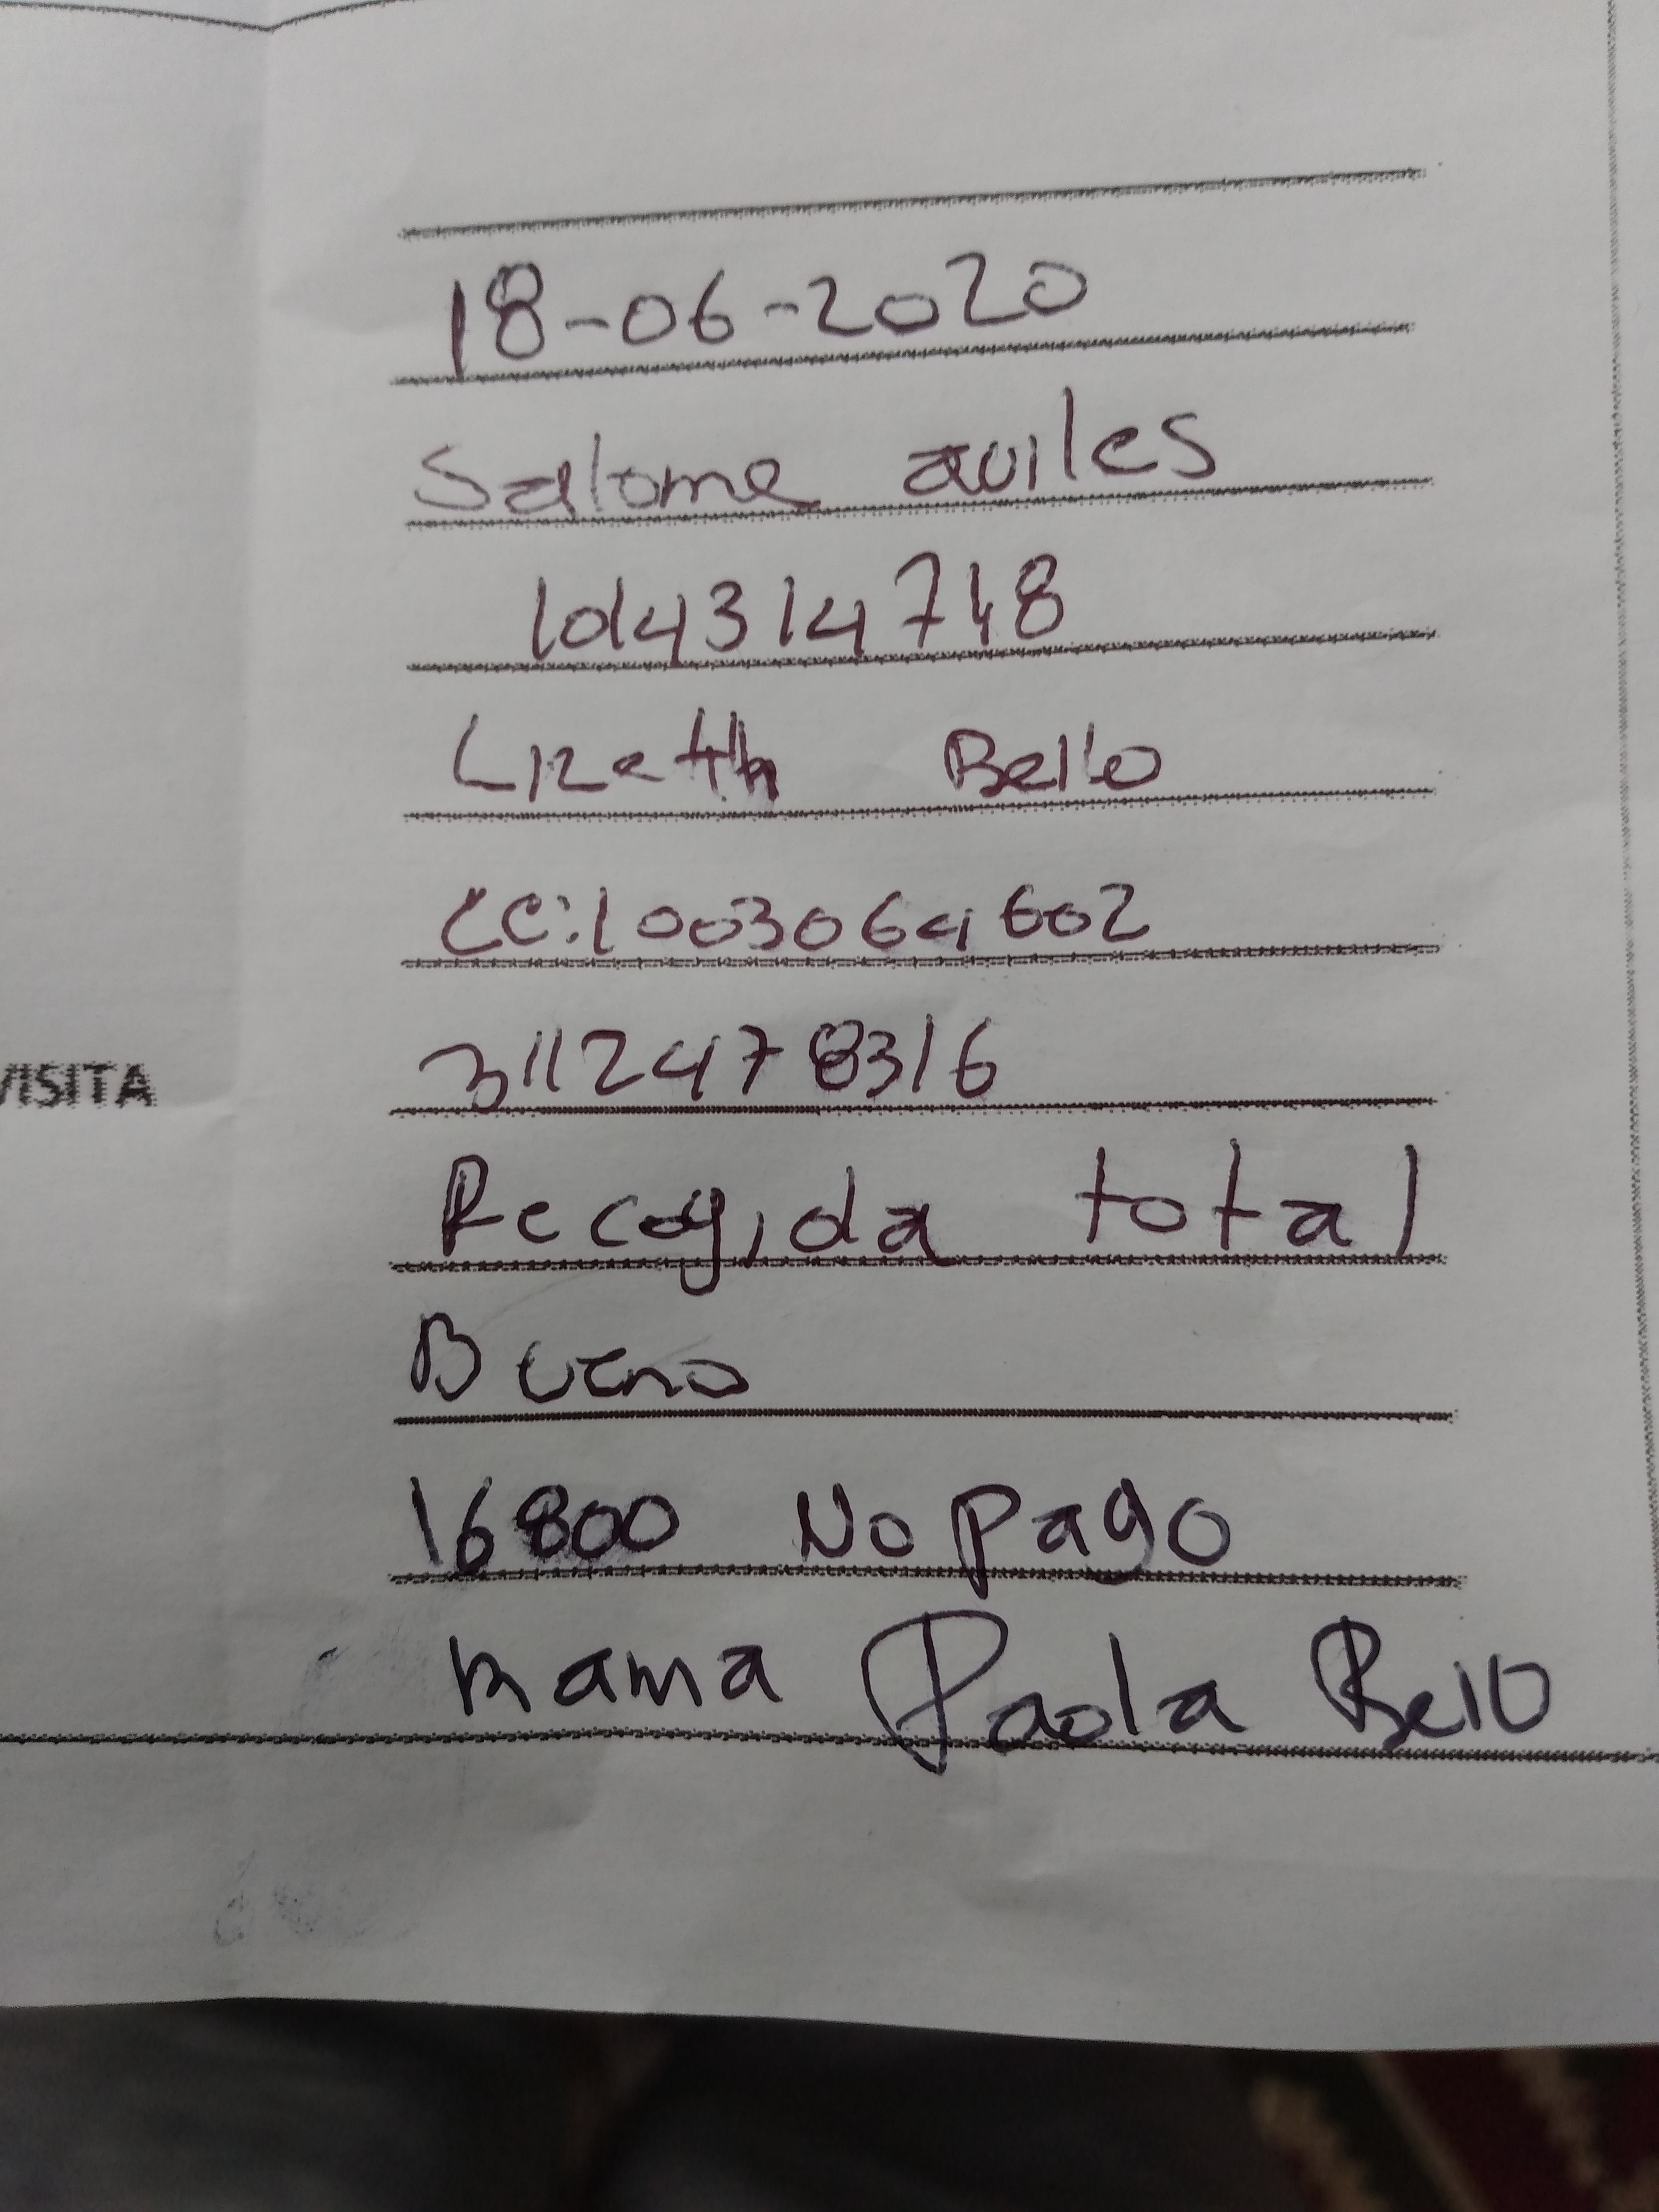 18-06-2020
Salome aviles
1014314718
Lizeth Bello
CC:1003064602
3112478316
Recogida total
Bueno
VISITA
16800 No pago
mama Paola Bello